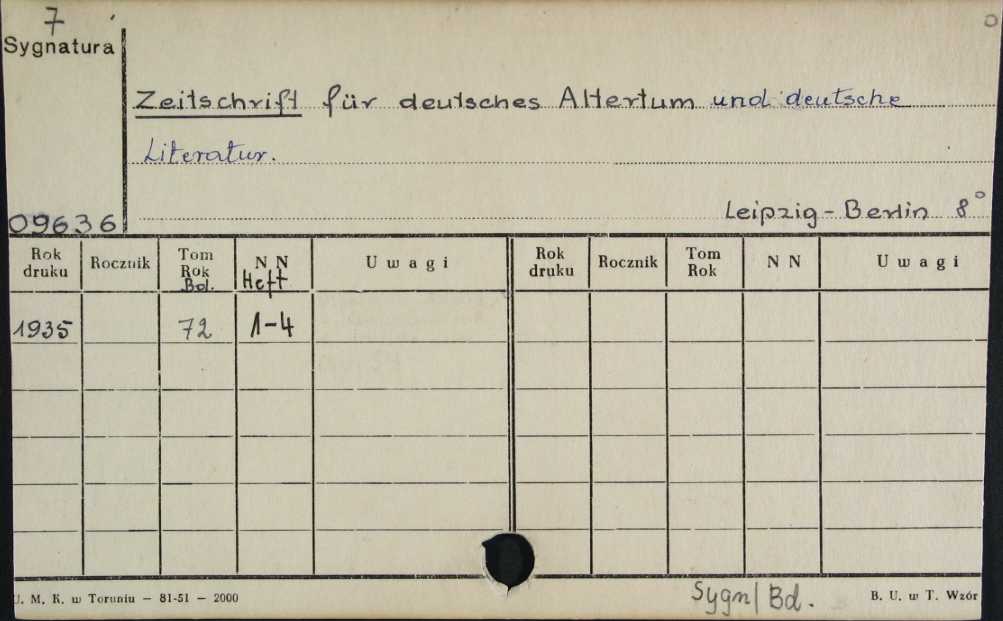 7
Sygnatura
Zeitschrift für deutsches Altertum und deutsche
Literatur.
09636
Leipzig - Berlin 8°
Rok druku Rocznik Tom Rok Bd. NN Heft Uwagi Rok druku Rocznik Tom Rok NN Uwagi
1935 72 1-4
U. M. K. w Toruniu — 81-51 — 2000
Sygn/Bd.
B. U. w T. Wzór